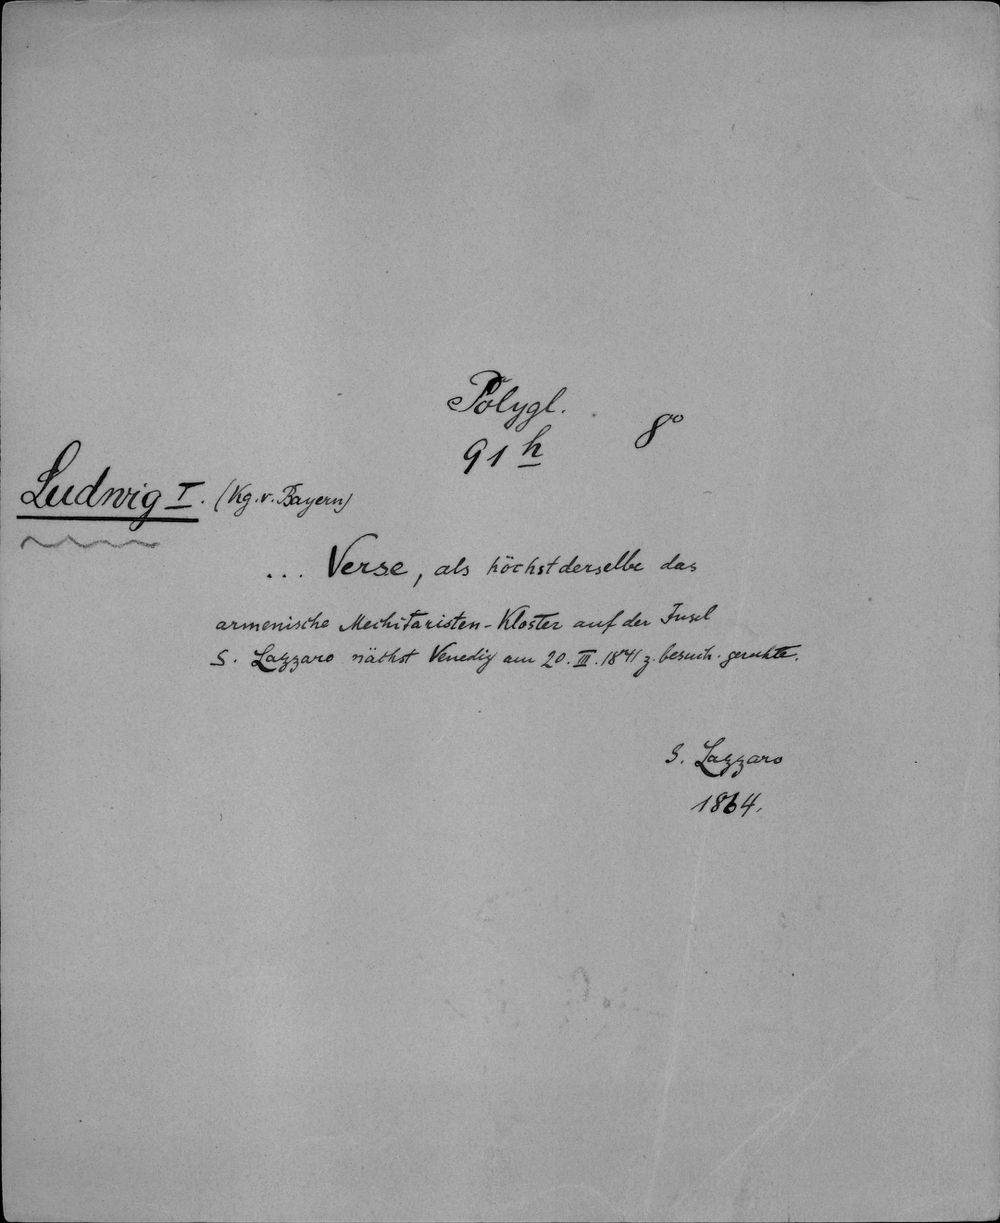 Polygl.
91 h
8°
Ludwig I. (Kg. v. Bayern)
... Verse, als höchstderselbe das
armenische Mechitaristen-Kloster auf der Insel
S. Lazzaro nächst Venedig am 20. III. 1841 z. besuch. geruhte.
S. Lazzaro
1864.